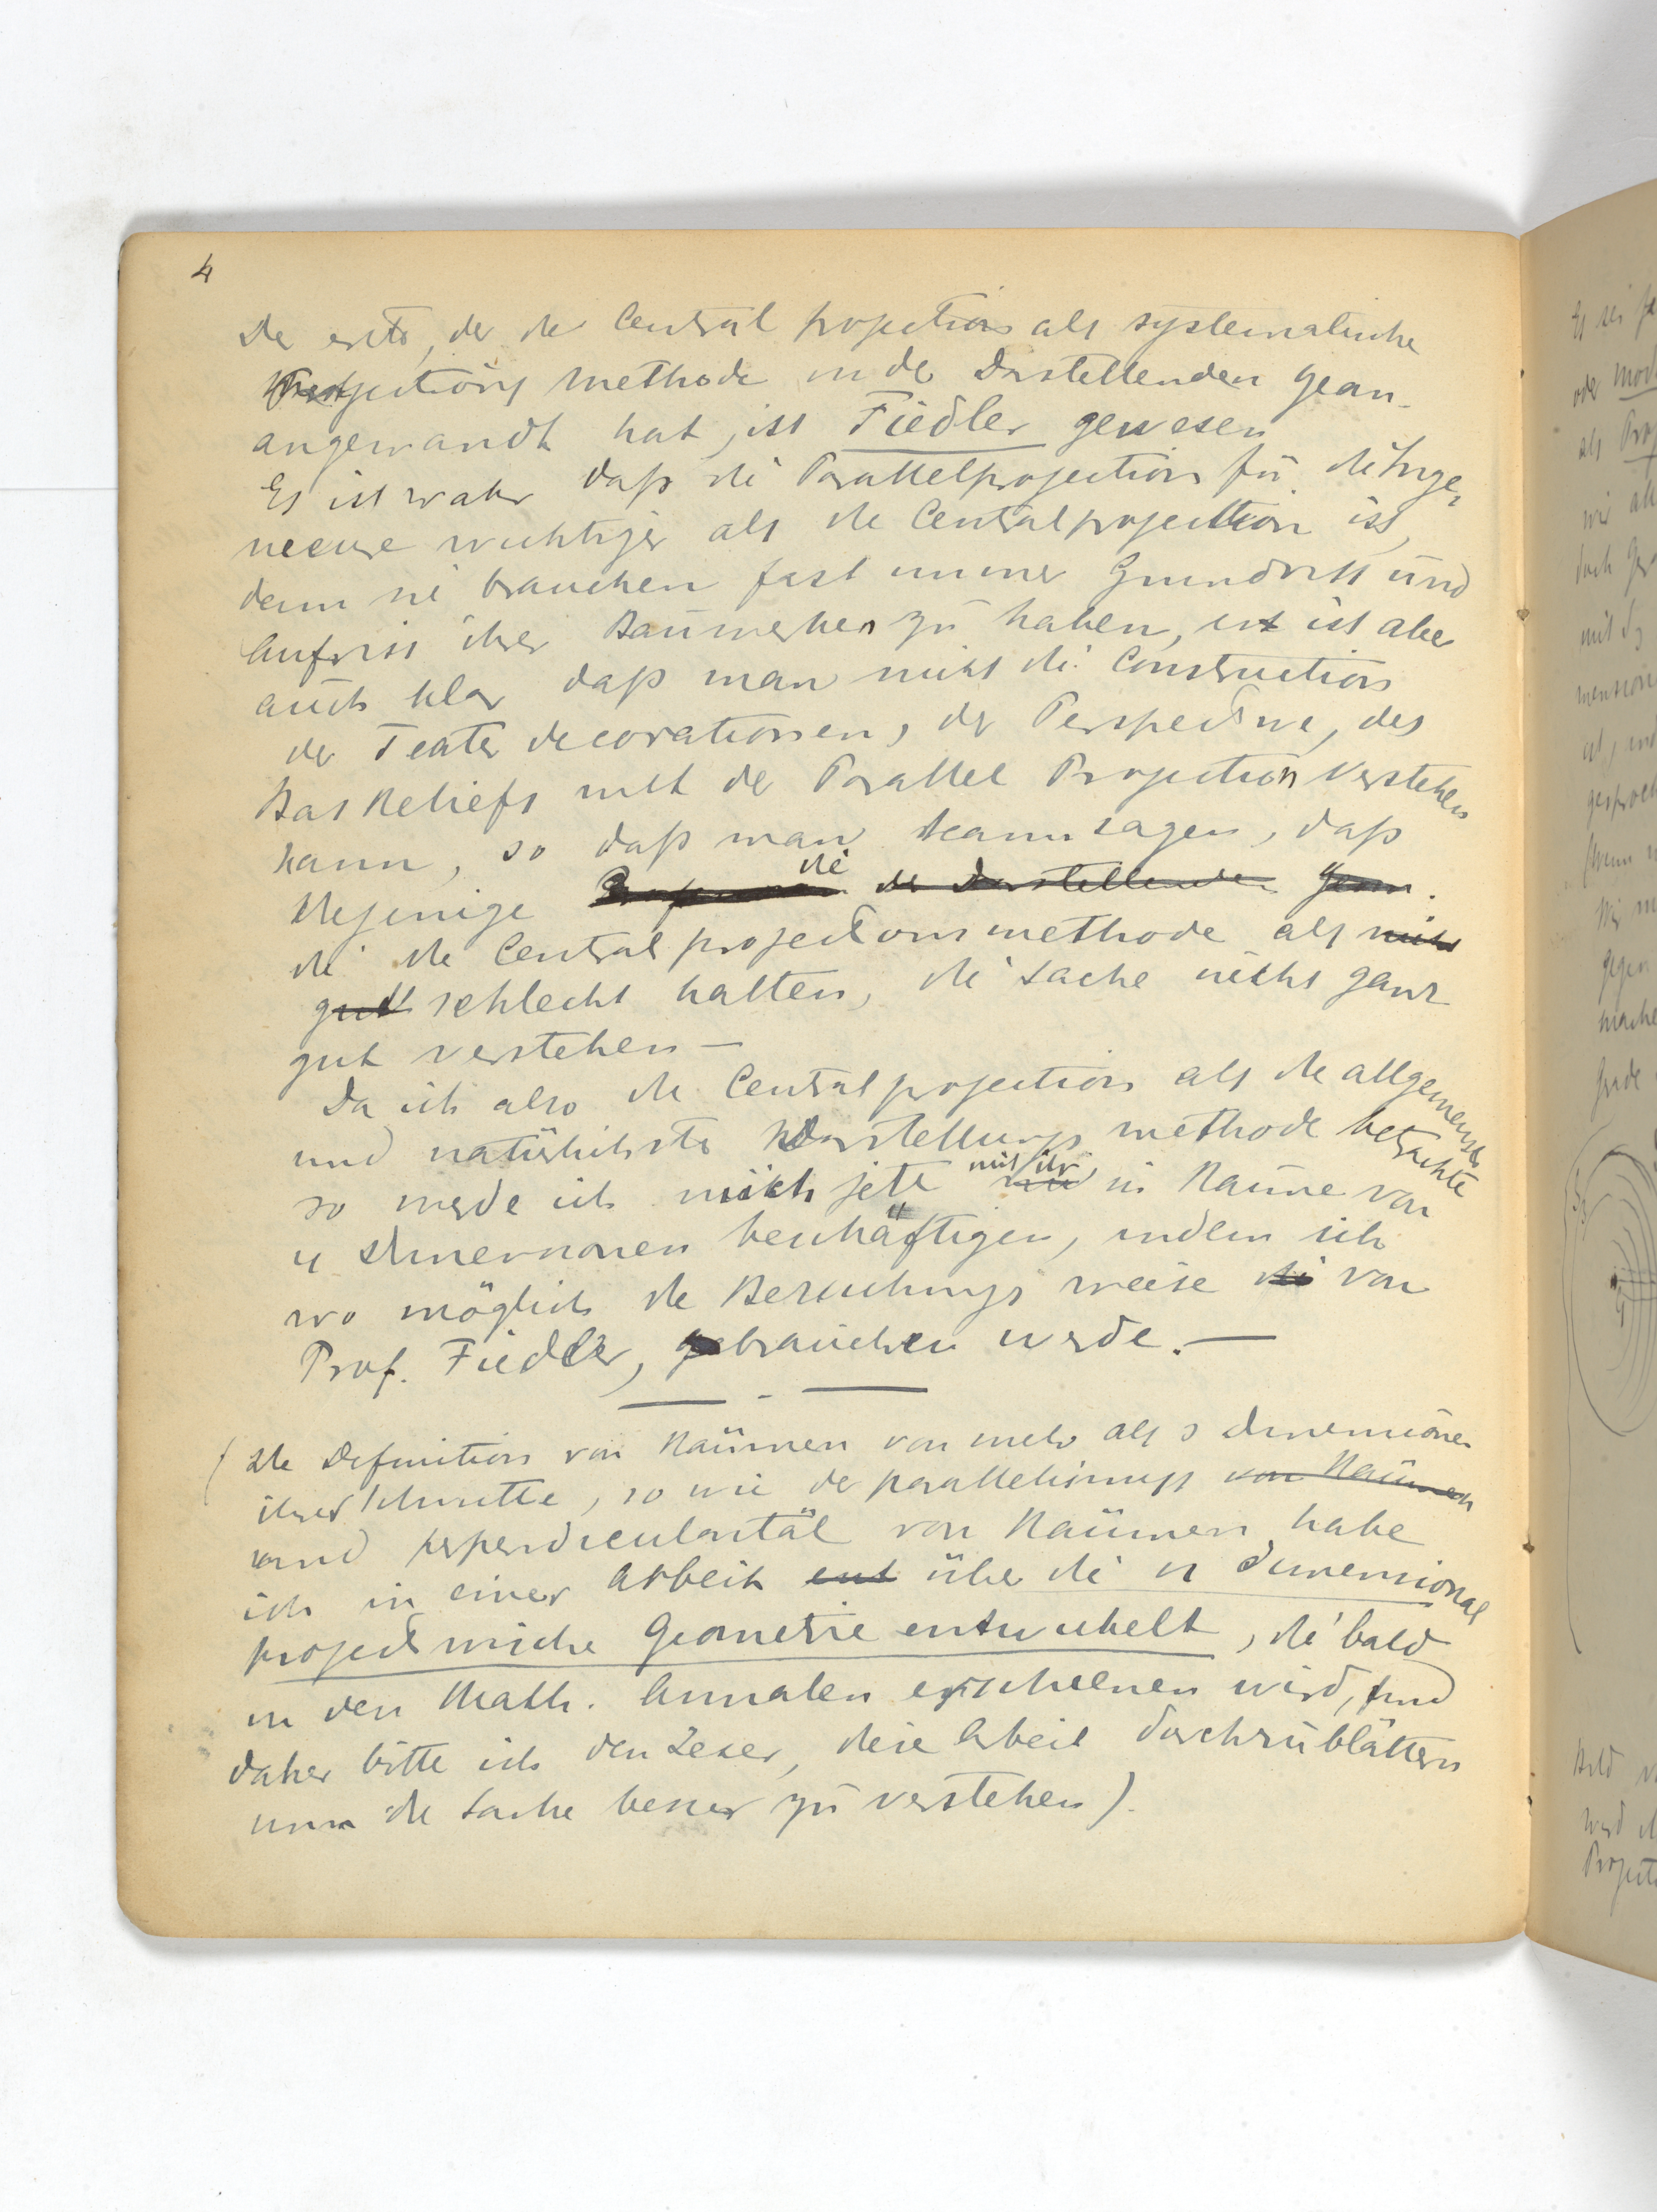 4
Der erste, der die Central projection als systematische
Projections methode in der Darstellenden Gean-
angewandt hat, ist Fiedler gewesen
Es ist wahr daß die Parallelprojection für die Inge,
neeure wichtiger als die Centralprojection ist,
denn sie brauchen fast immer Grundriss und
Aufriss ihrer Bauwerken zu haben, ist ist aber
auch klar daß man nicht die Construction
der Teater decorationen, der Perspective, des
Bas Reliefs mit der Parallel Projection verstehen
kann, so daß man kann sagen, daß
diejenige die der Darstellenden Geom.
die die Central projections methode als nicht
gut schlecht halten, die Sache nicht ganz
gut verstehen —
Da ich also die Centralprojection als die allgemeinste
und natürlichste Darstellungs methode betrachte
so werde ich mich jetz mit ihr in Raüme von
n Dimensionen beschäftigen, indem ich
wo möglich die Bezeichnungs weise die von
Prof. Fiedler, gebrauchen werde. —
( Die Definition von Raümen von mehr als 3 Dimensionen
ihrer Schnitte, so wie der parallelismuss von Raümen
und perpendicularität von Raümen habe
ich in einer Arbeit ent über die n dimensional
projectivische Geometrie entwickelt, die bald
in den Math. Annalen erscheenen wird, und
daher bitte ich den Leser, diese Arbeit durchzublättern
um die Sache besser zu verstehen).